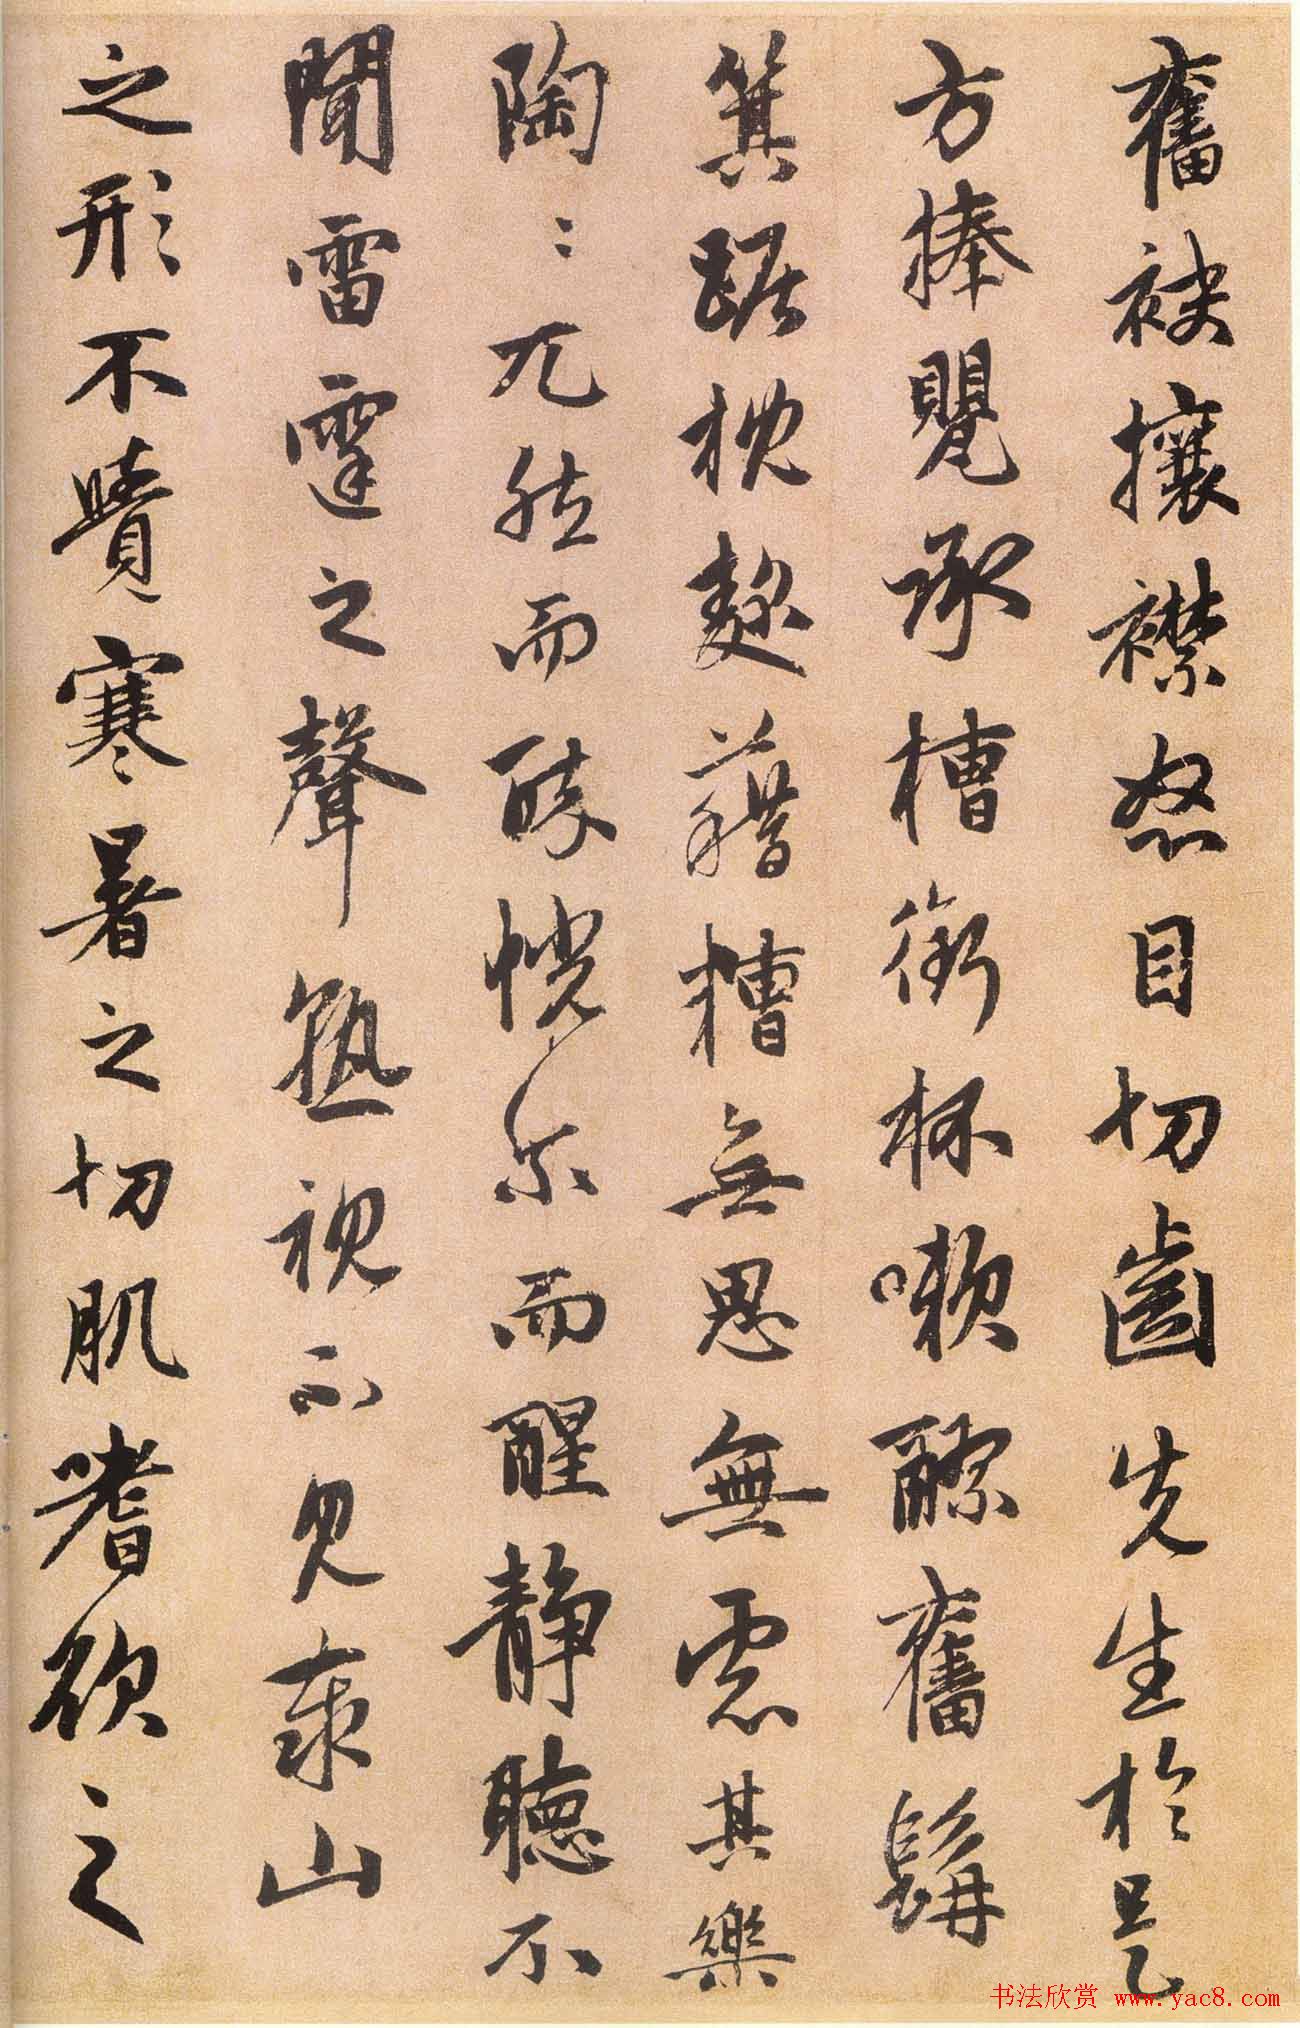 奮袂攘襟怒目切齒先生於是
方捧甖承槽銜杯嗽醪奮髯
箕踞枕麴藉糟無思無慮其樂
陶〻兀然而醉恍尔而醒静聽不
聞雷霆之聲熟視不見泰山
之形不覺寒暑之切肌嗜欲之
书法欣赏 www.yac8.com